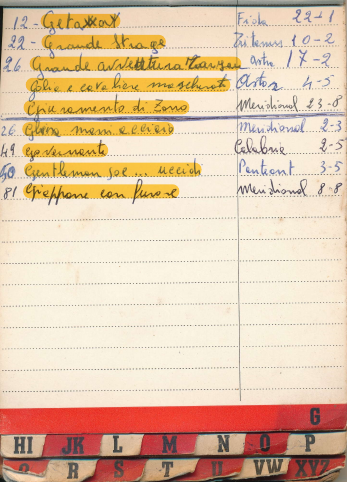 12 - Getaxxxt Fida 22-1
22 - Grande Strage Tritanus 10-2
26 Grande avventura Tarzan Astra 17-2
Golia e cavaliere mascherato Astor 4-5
Giuramento di Zorro Meridional 23-8
26 mani Meridional 2-3
49 Governante Calabria 2-5
50 Gentleman Joe... uccidi Pentaont 3-5
81 Giappone con furore Meridional 8-8
G
HI JK L M N O P
Q R S T U VW XYZ